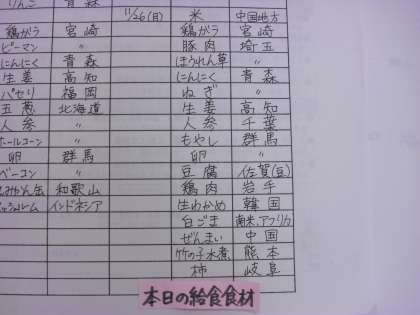 りんご 青森
11/26(月) 米 中国地方
鶏ガラ 宮崎 鶏ガラ 宮崎
ピーマン 〃 豚肉 埼玉
にんにく 青森 ほうれん草 〃
生姜 高知 にんにく 青森
パセリ 福岡 ねぎ 〃
玉葱 北海道 生姜 高知
人参 〃 人参 千葉
ホールコーン 〃 もやし 群馬
卵 群馬 卵 〃
ベーコン 〃 豆腐 佐賀(豆)
みかん缶 和歌山 鶏肉 岩手
マッシュルーム インドネシア 生わかめ 韓国
白ごま 南米、アフリカ
ぜんまい 中国
竹の子水煮 熊本
柿 岐阜
本日の給食食材